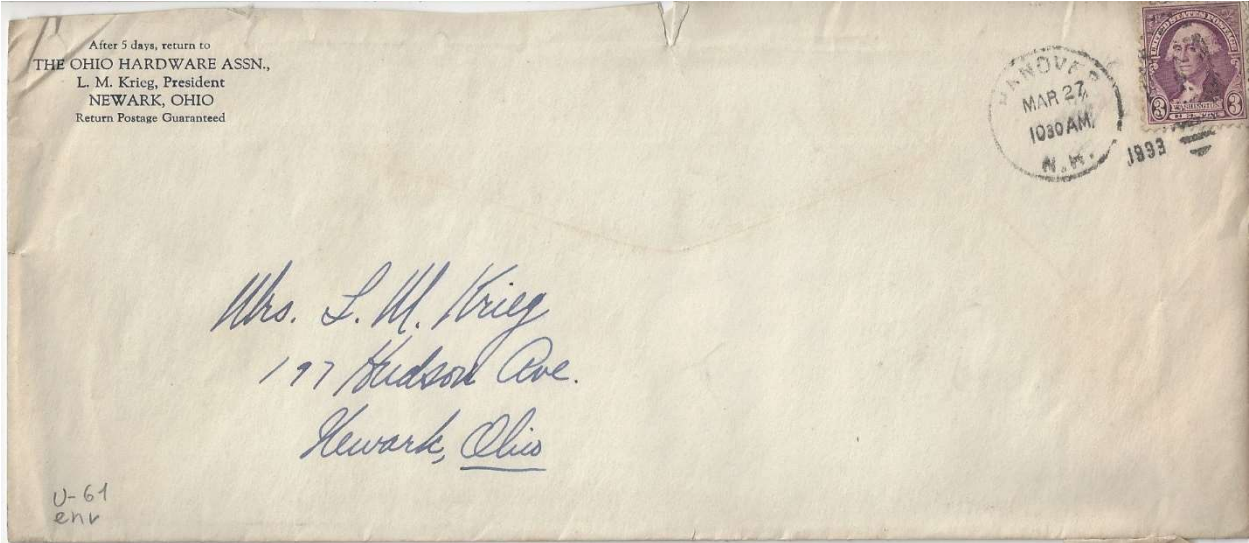 After 5 days, return to
THE OHIO HARDWARE ASSN.,
L. M. Krieg, President
NEWARK, OHIO
Return Postage Guaranteed
HANOVER
MAR 27
1030 AM
N.H.
1933
UNITED STATES POSTAGE
3 WASHINGTON 3
Mrs. L. M. Krieg
197 Hudson Ave.
Newark, Ohio
U-61
env